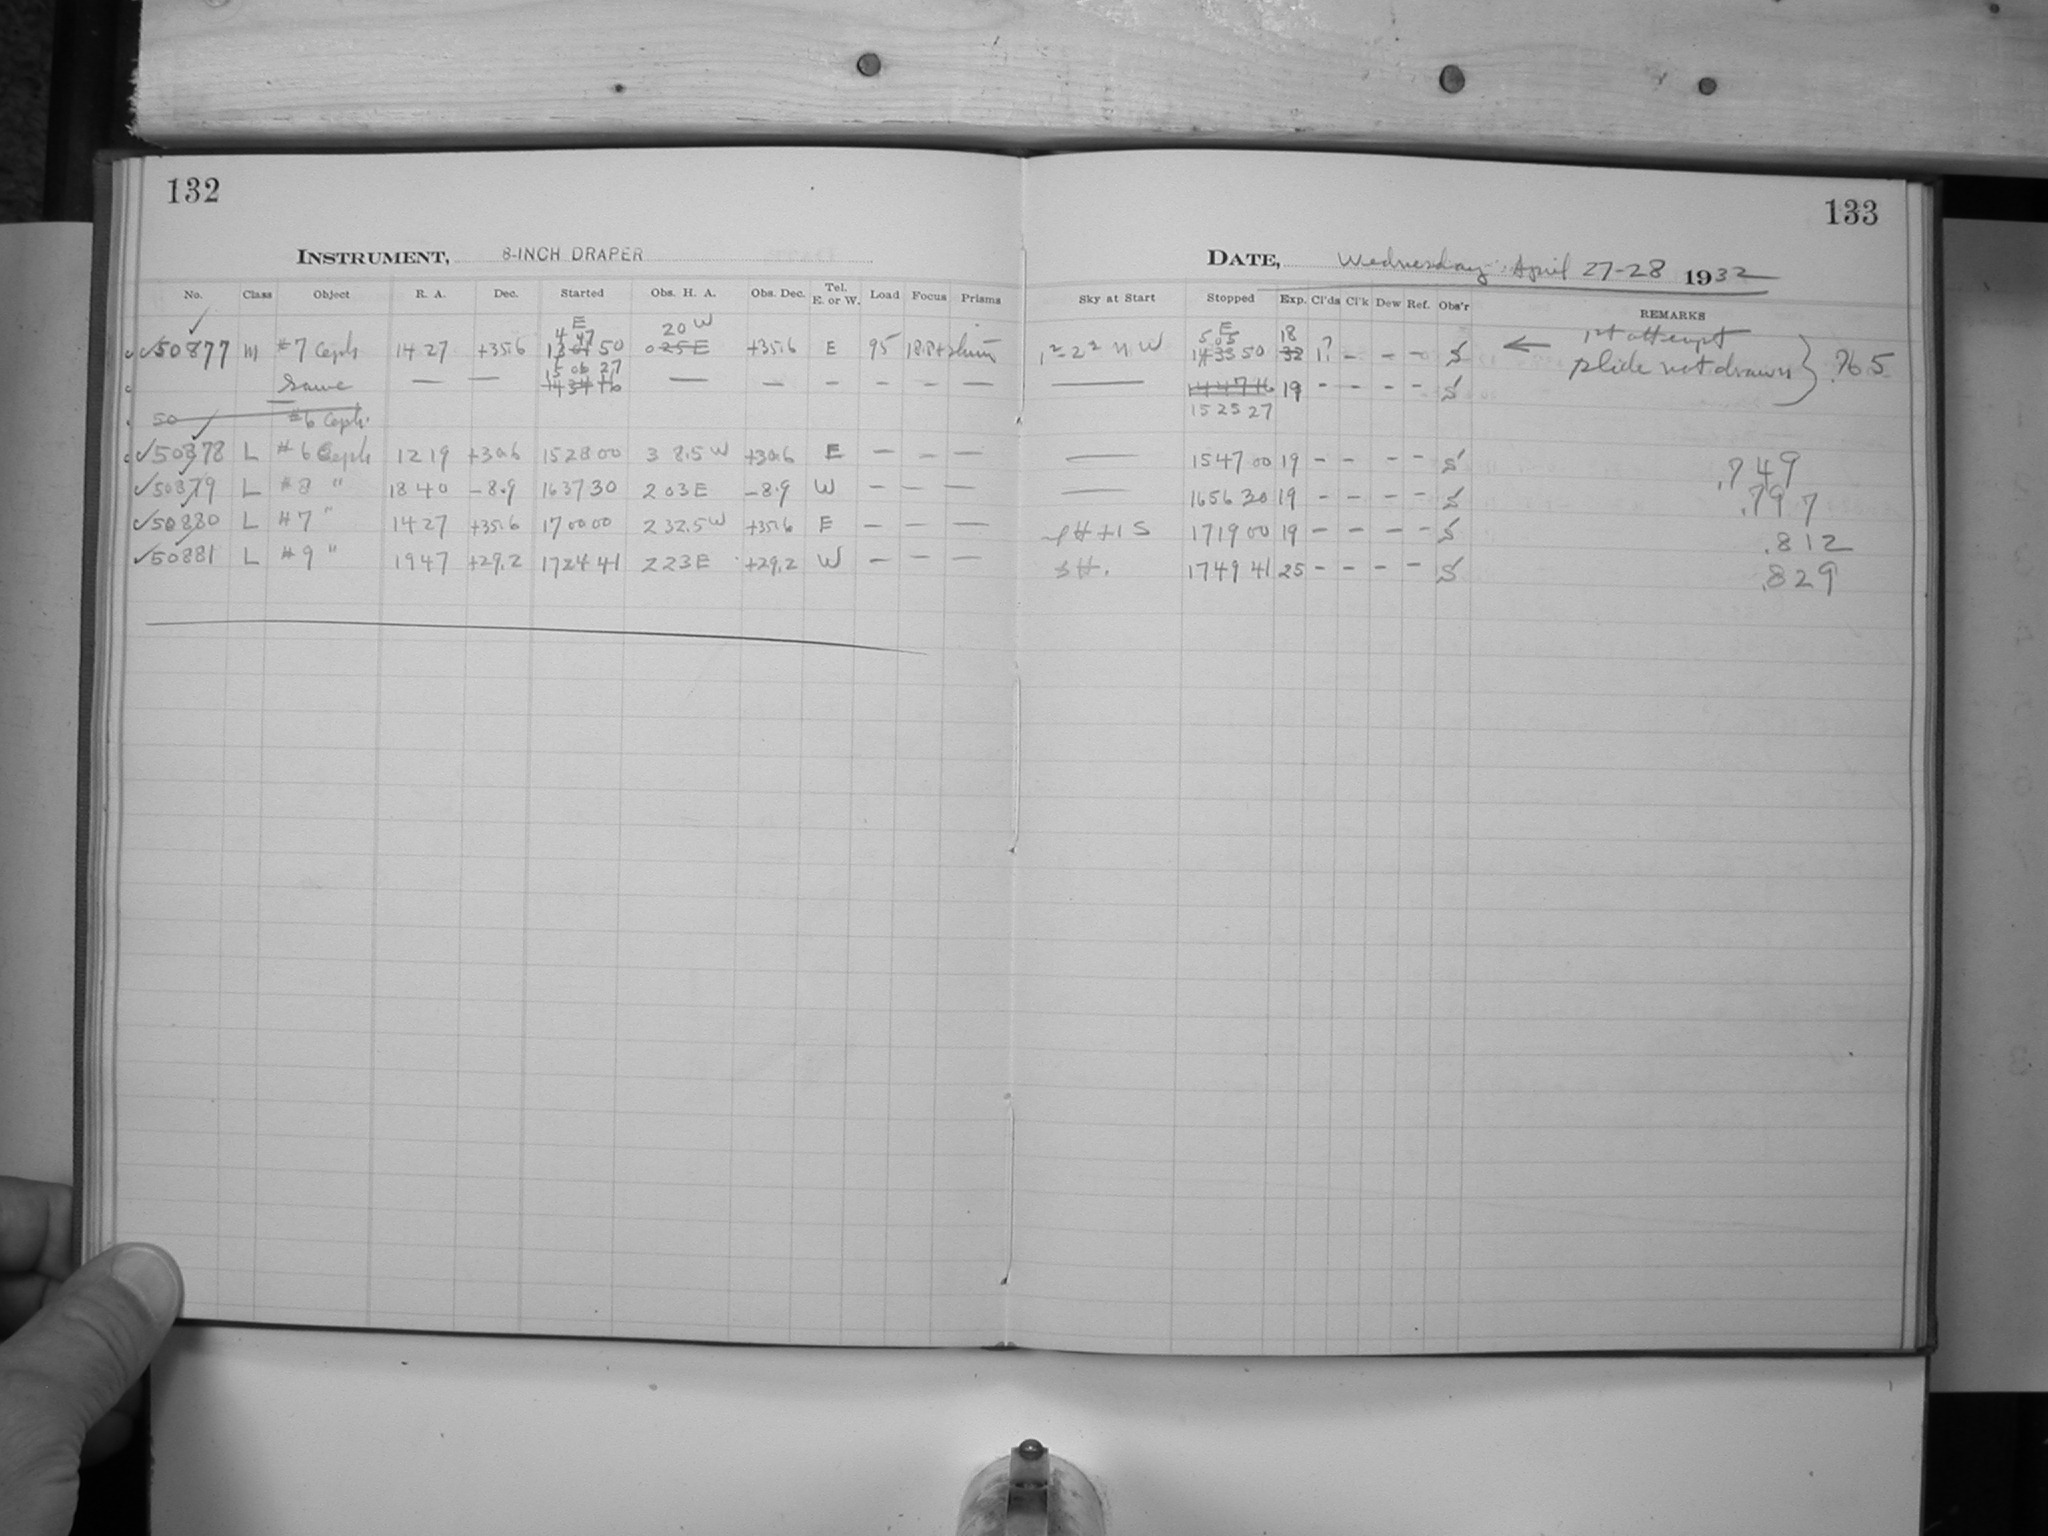 132
133
INSTRUMENT, 8-INCH DRAPER
DATE, Wednesday April 27-28 1932
No. Class Object R. A. Dec. Started Obs. H. A. Obs. Dec. Tel. E. or W. Load Focus Prisms Sky at Start Stopped Exp. Cl'ds Cl'k Dew Ref. Obs'r REMARKS
E 20 W E 18
50877 m #7 Ceph 14 27 +35.6 50 0 25 E +35.6 E 95 N W 14 33 50 32 1? - - - S ← 1st attempt
slide not drawn } .765
15 06 27
same — — 14 34 16 — — — — — — — 14 47 16 19 - - - - S
50 #6 Ceph. 15 25 27
50878 L #6 Ceph 12 19 +30.6 15 28 00 3 8.5 W +30.6 E — — — — 15 47 00 19 - - - - S .749
50879 L #8 " 18 40 -8.9 16 37 30 2 03 E -8.9 W — — — — 16 56 30 19 - - - - S .797
50880 L #7 " 14 27 +35.6 17 00 00 2 32.5 W +35.6 E — — — 17 19 00 19 - - - - S .812
50881 L #9 " 19 47 +29.2 17 24 41 2 23 E +29.2 W — — — 17 49 41 25 - - - - S .829